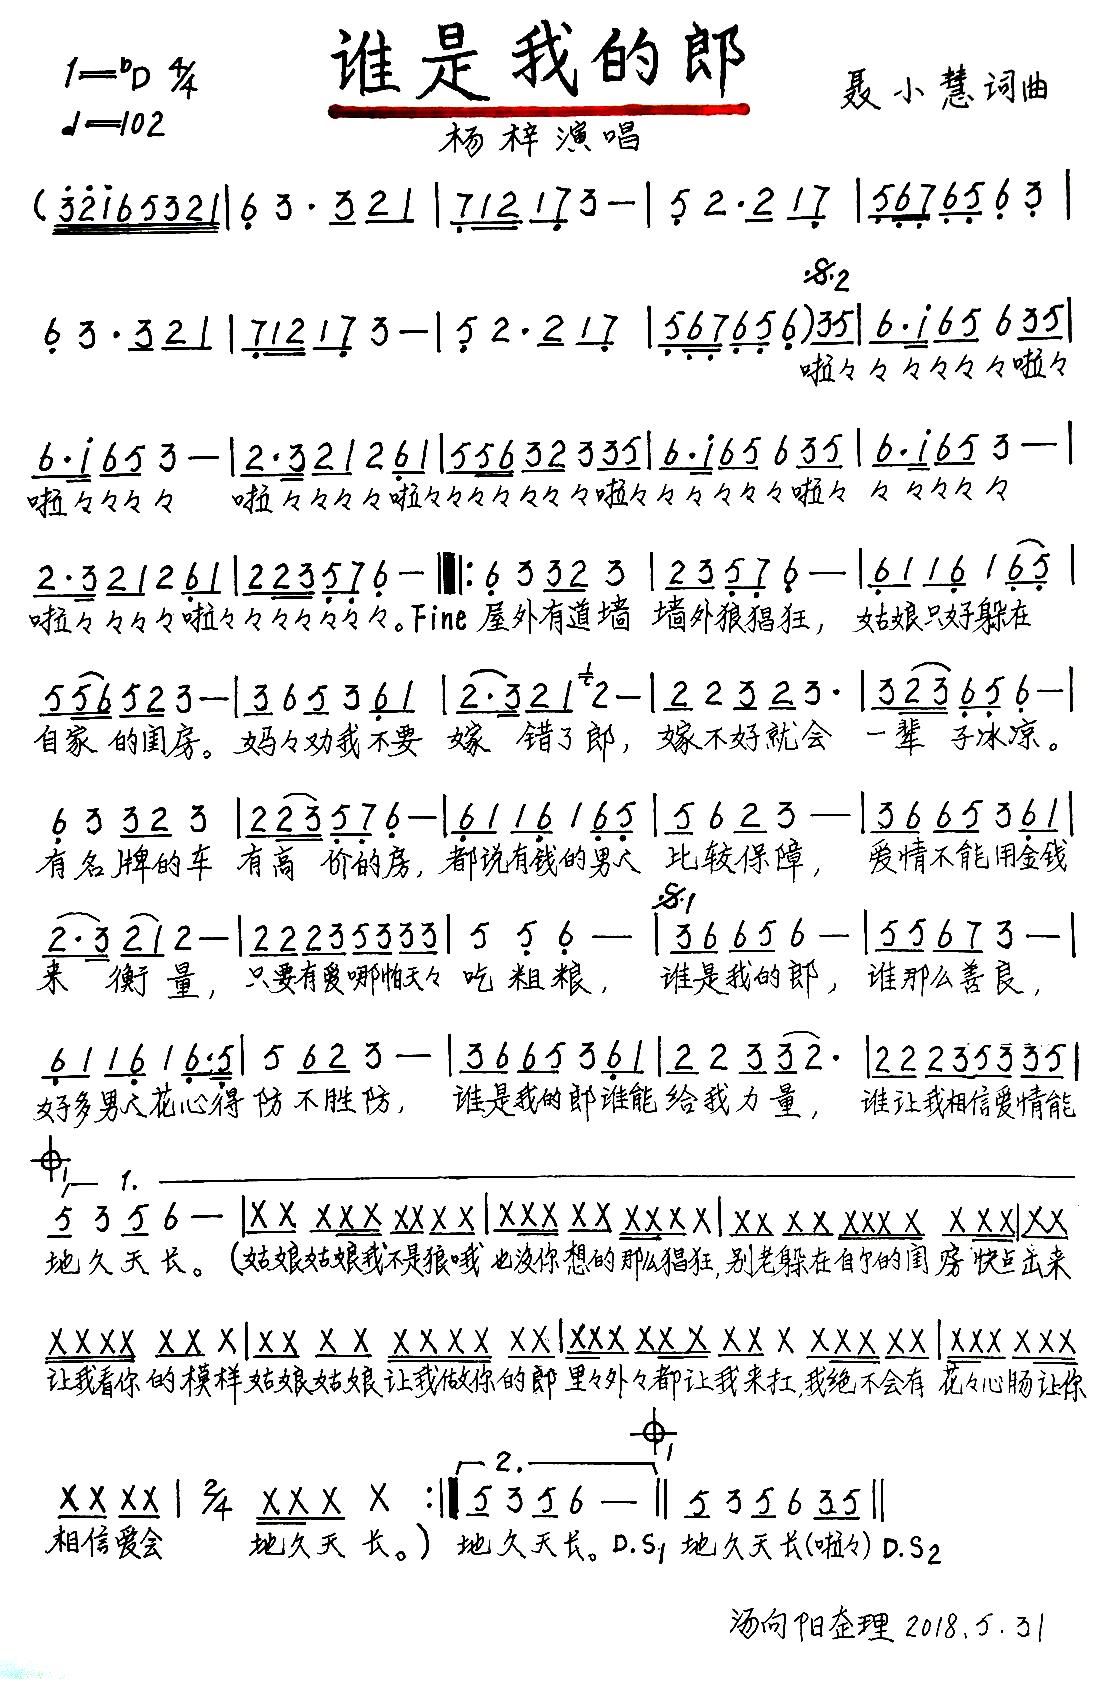 谁是我的郎
1=♭D 4/4
聂小慧词曲
♩=102
杨梓演唱
(32165321|63·321|712173—|52·217|5676563|
𝄋2
63·321|712173—|52·217|567656)35|6·165635|
啦々々々々々々啦々
6·1653—|2·321261|5563233 35|6·165635|6·1653—|
啦々々々々 啦々々々々啦々々々々々々啦々々々々々々啦々 々々々々々
2·321261|223576—‖:63323|23576—|6116165|
啦々々々々啦々々々々々々々。Fine 屋外有道墙 墙外狼猖狂，姑娘只好躲在
556523—|365361|2·3212—|22323·|323656—|
自家的闺房。妈々劝我不要 嫁错了郎，嫁不好就会 一辈子冰凉。
63323|223576—|6116165|5623—|3665361|
有名牌的车 有高价的房，都说有钱的男人 比较保障，爱情不能用金钱
𝄋1
2·3212—|22235333|556—|36656—|55673—|
来衡量，只要有爱哪怕天々 吃粗粮，谁是我的郎，谁那么善良，
611616·5|5623—|3665361|22332·|22235335|
好多男人花心得 防不胜防，谁是我的郎谁能 给我力量，谁让我相信爱情能
𝄌1
1.
5356—|XX XXX XXXX|XXX XX XXXX|XX XX XXXX XXX|XX
地久天长。(姑娘姑娘我不是狼哦 也没你想的那么猖狂,别老躲在自个的闺房 快点出来
XXXX XXX|XX XX XXXX XX|XXX XXX XXX XXXXX|XXX XXX
让我看你的模样 姑娘姑娘让我做你的郎 里々外々都让我来扛,我绝不会有 花々心肠让你
𝄌1
2.
XX XX|2/4 XXX X:‖5356—‖535635‖
相信爱会 地久天长。) 地久天长。D.S1 地久天长(啦々) D.S2
汤向阳整理 2018.5.31